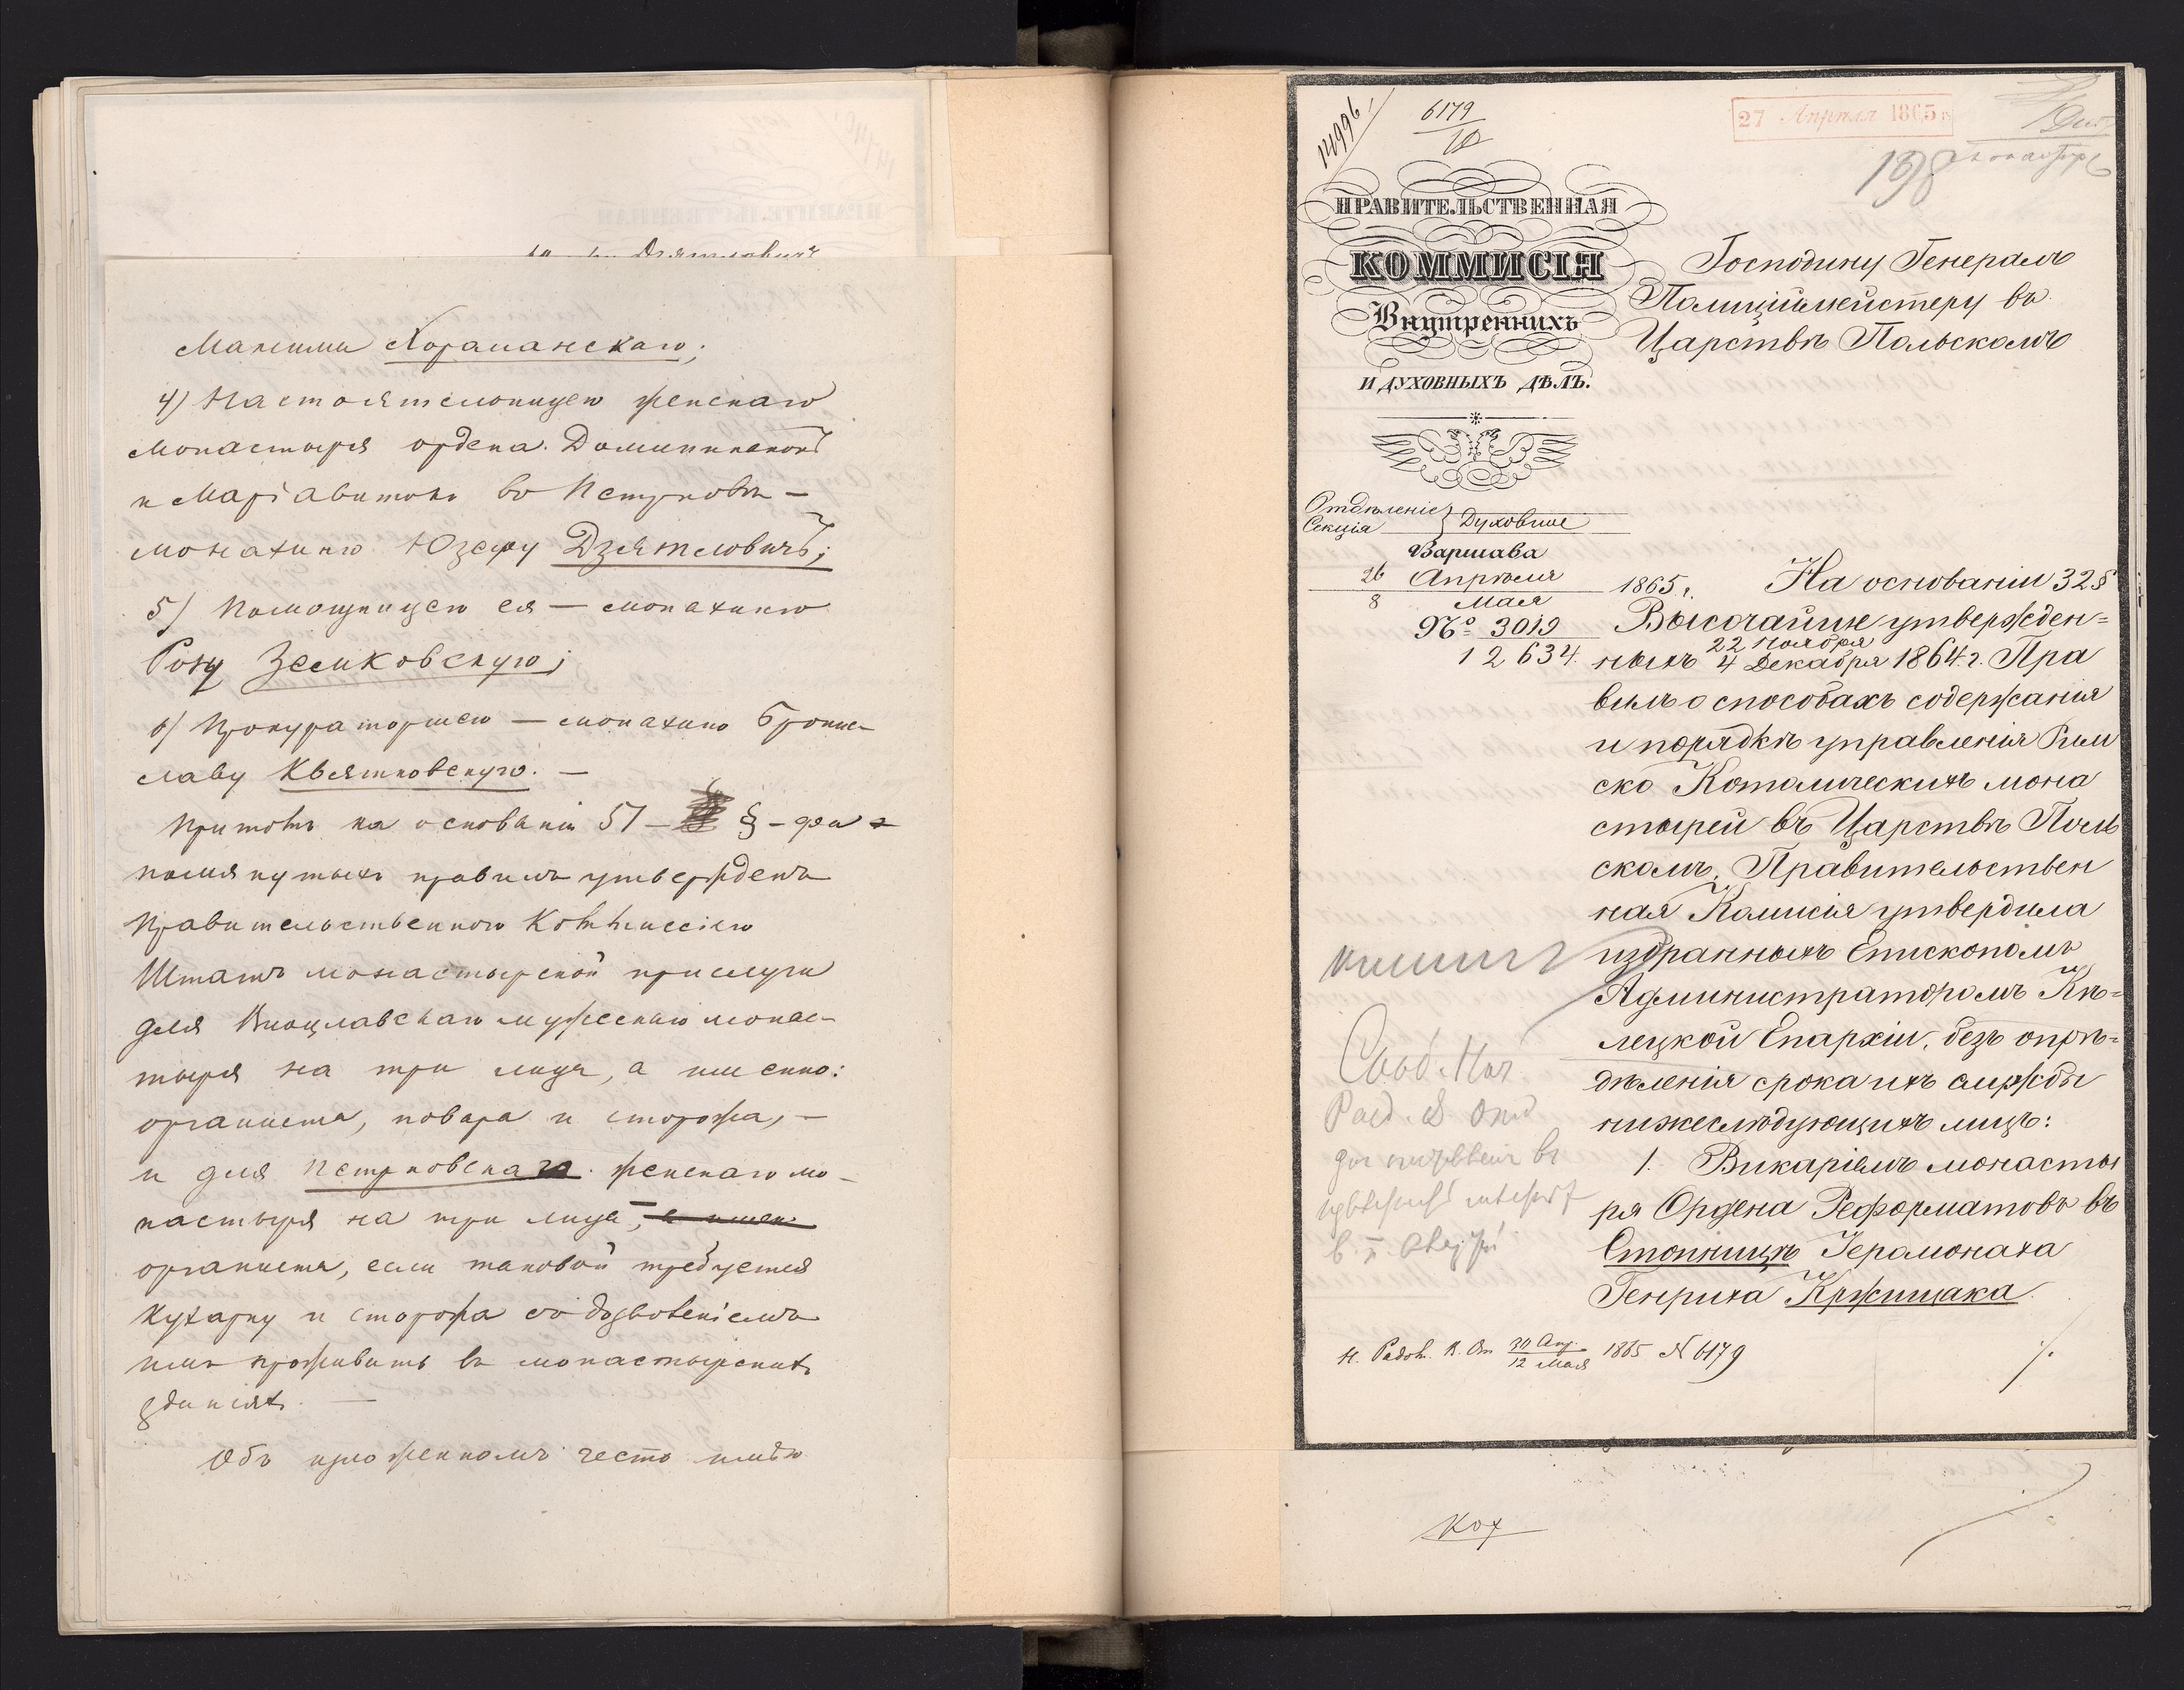 Максима Хораманскаго;
4) Настоятельницею женскаго
монастыря ордена Доминиканокъ
и Маріавитокъ въ Петрковѣ —
монахиню Юзефу Дзятеловичъ;
5) Помощницею ея — монахиню
Розу Земковскую;
6) Прокураторшею — монахиню Брони-
славу Квятковскую. —
При томъ на основаніи 57 — § —
помянутыхъ правилъ утвержденъ
Правительственною Коммиссіею
Штатъ монастырской прислуги
для Влоцлавскаго мужескаго монас-
тыря на три лица, а именно:
органиста, повара и сторожа, —
и для Петрковскаго женскаго мо-
настыря на три лица, а имен:
органиста, если таковой требуется
кухарку и сторожа съ дозволеніемъ
имъ проживать въ монастырскихъ
зданіяхъ. —
Объ изложенномъ честь имѣю
14996
6179
10
27 Апрѣля 1865 г.
198
ПРАВИТЕЛЬСТВЕННАЯ
КОММИСІЯ
Внутреннихъ
И ДУХОВНЫХЪ ДѢЛЪ.
Господину Генералъ
Полиціймейстеру въ
Царствѣ Польскомъ
Отдѣленіе
Секція
Духовныя
Варшава
26 Апрѣля
8 Мая
1865 г.
№ 3019
12634
На основаніи 32 §
Высочайше утвержден=
22 Ноября
ныхъ 4 Декабря 1864 г. Пра
вилъ о способахъ содержанія
и порядкѣ управленія Рим
ско Католическихъ мона
стырей въ Царствѣ Поль
скомъ, Правительствен
ная Комисія утвердила
избранныхъ Епископомъ
Администраторомъ Кѣ=
лецкой Епархіи, безъ опрѣ=
дѣленія срока ихъ службы
нижеслѣдующихъ лицъ:
1. Викаріемъ монасты
ря Ордена Реформатовъ въ
Стопницѣ Іеромонаха
Генриха Кржищака.
Н. Радом. В. От. 30 Апр.
12 Мая
1865 № 6179
./.